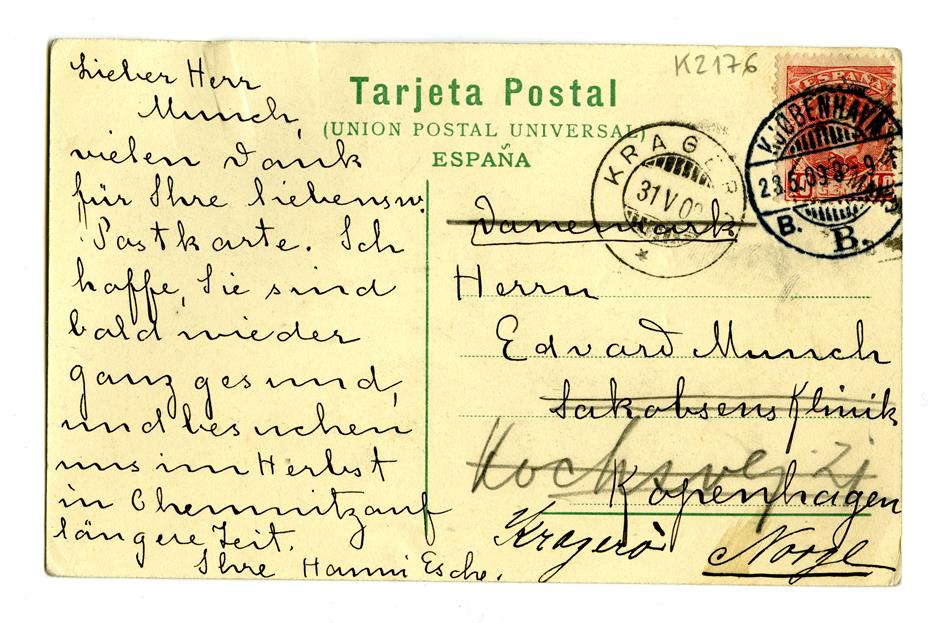 Lieber Herr
Munch,
vielen Dank
für Ihre liebensw.
Postkarte. Ich
hoffe, Sie sind
bald wieder
ganz gesund,
und besuchen
uns im Herbst
in Chemnitz auf
längere Zeit.
Ihre Hanni Esche.
K2176
Tarjeta Postal
(UNION POSTAL UNIVERSAL)
ESPAÑA
ESPAÑA
KRAGERØ
31 V 09
KJØBENHAVN
28.5.09 8-9 F
B. B.
Danemark
Herrn
Edvard Munch
Jakobsens Klinik
Kopenhagen
Kragerö
Norge